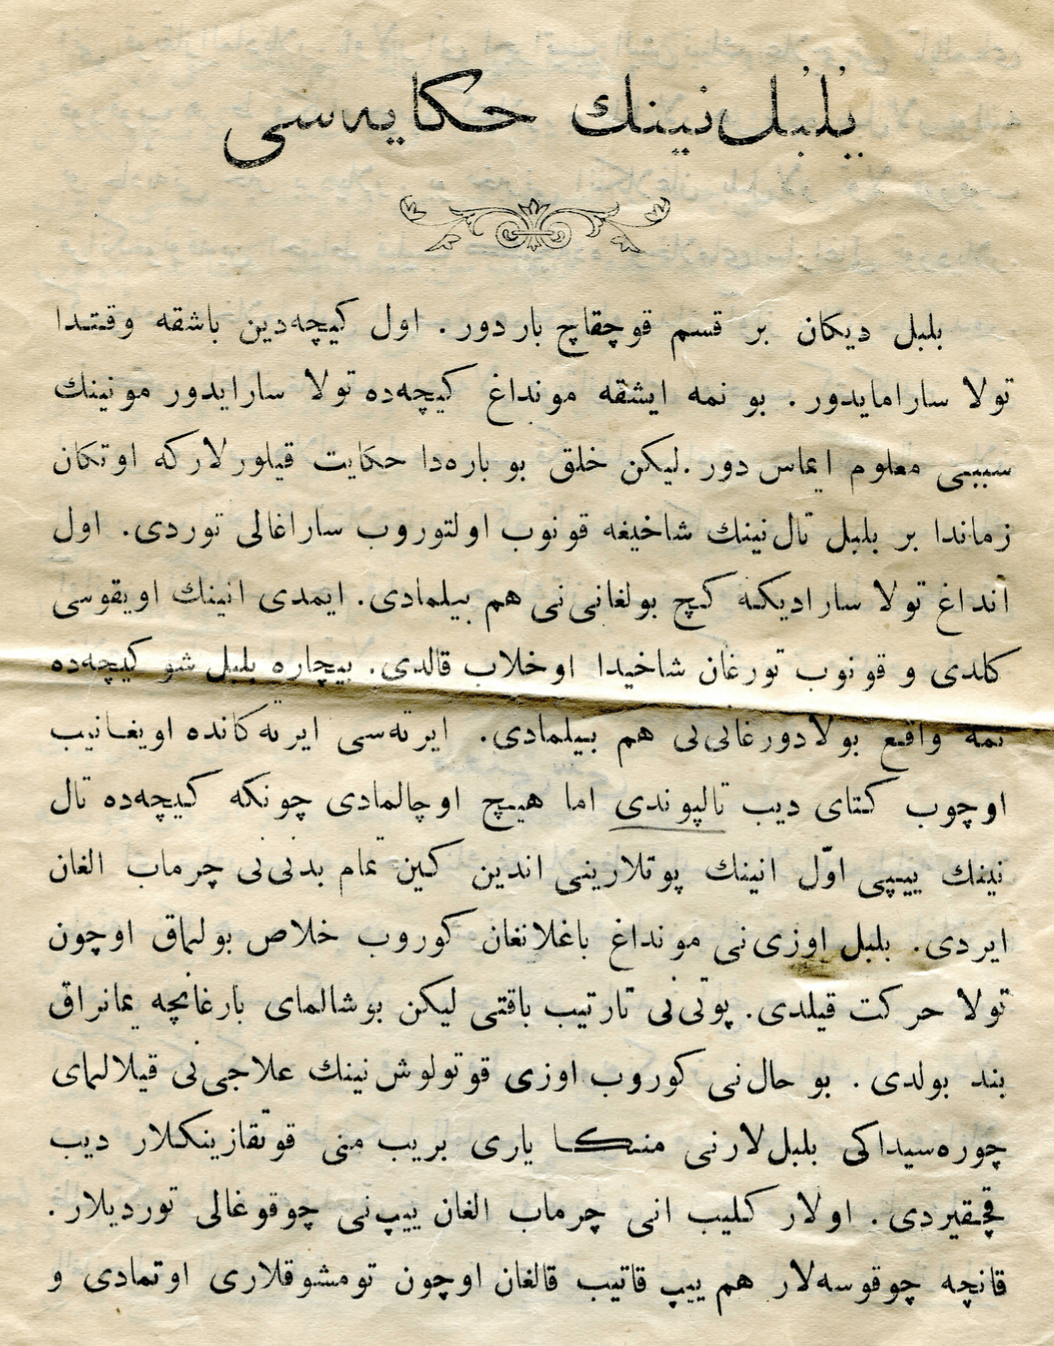 بلبل‌نینك حکایه‌سی
بلبل دیکان بر قسم قوچقاچ بار دور. اول کیچه‌دین باشقه وقتدا
تولا سارامایدور. بو نمه ایشقه مونداغ کیچه‌ده تولا سارایدور مونینك
سببی معلوم ایماس دور. لیکن خلق بو باره‌دا حکایت قیلورلارکه اوتکان
زماندا بر بلبل تال‌نینك شاخیغه قونوب اولتوروب ساراغالی توردی. اول
آنداغ تولا سارادیکه کیچ بولغانی‌نی هم بیلمادی. ایمدی انینك اویقوسی
کلدی و قونوب تورغان شاخیدا اوخلاب قالدی. بیچاره بلبل شو کیچه‌ده
نمه واقع بولادورغانی‌نی هم بیلمادی. ایرته‌سی ایرته‌کانده اویغانیب
اوچوب کتای دیب تالپوندی اما هیچ اوچالمادی چونکه کیچه‌ده تال
نینك ییپی اوّل انینك پوتلارینی اندین کین تمام بدنی‌نی چرماب الغان
ایردی. بلبل اوزی‌نی مونداغ باغلانغان کوروب خلاص بولماق اوچون
تولا حرکت قیلدی. پوتی‌نی تارتیب باقتی لیکن بوشالمای بارغانچه یمانراق
بند بولدی. بو حال‌نی کوروب اوزی قوتولوش‌نینك علاجی‌نی قیلالمای
چوره‌سیداکی بلبل‌لارنی منکا یاری بریب منی قوتقازینکلار دیب
قچقیردی. اولار کلیب انی چرماب الغان ییپ‌نی چوقوغالی توردیلار.
قانچه چوقوسه‌لار هم ییپ قاتیب قالغان اوچون تومشوقلاری اوتمادی و